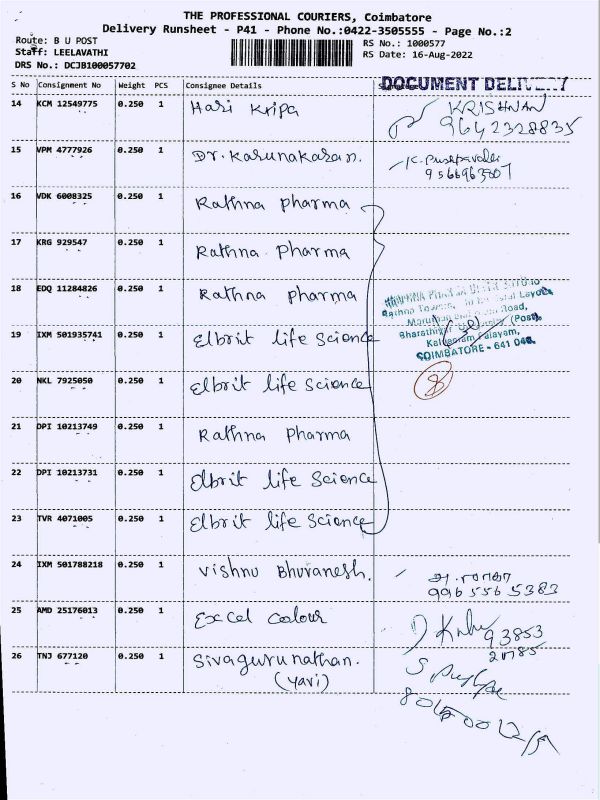 THE PROFESSIONAL COURIERS, Coimbatore
Delivery Runsheet - P41 - Phone No.:0422-3505555 - Page No.:2
Route: B U POST
Staff: LEELAVATHI
DRS No.: DCJB100057702
RS No.: 1000577
RS Date: 16-Aug-2022
S No Consignment No Weight PCS Consignee Details
DOCUMENT DELIVERY
14 KCM 12549775 0.250 1 Hari Kripa KRISHNAN
9642328835
15 VPM 4777926 0.250 1 Dr. Karunakaran.
16 VDK 6008325 0.250 1 Rathna pharma
17 KRG 929547 0.250 1 Rathna Pharma
18 EDQ 11284826 0.250 1 Rathna pharma
Road,
(Post),
COIMBATORE - 641 046.
19 IXM 501935741 0.250 1 Elbrit life Science
20 NKL 7925050 0.250 1 Elbrit life Science
8
21 DPI 10213749 0.250 1 Rathna Pharma
22 DPI 10213731 0.250 1 Elbrit life Science
23 TVR 4071005 0.250 1 Elbrit life Science
24 IXM 501788218 0.250 1 Vishnu Bhuvanesh.
9965565383
25 AMD 25176013 0.250 1 Excel Colour
93853
26 TNJ 677120 0.250 1 Sivagurunathan.
(Yavi)